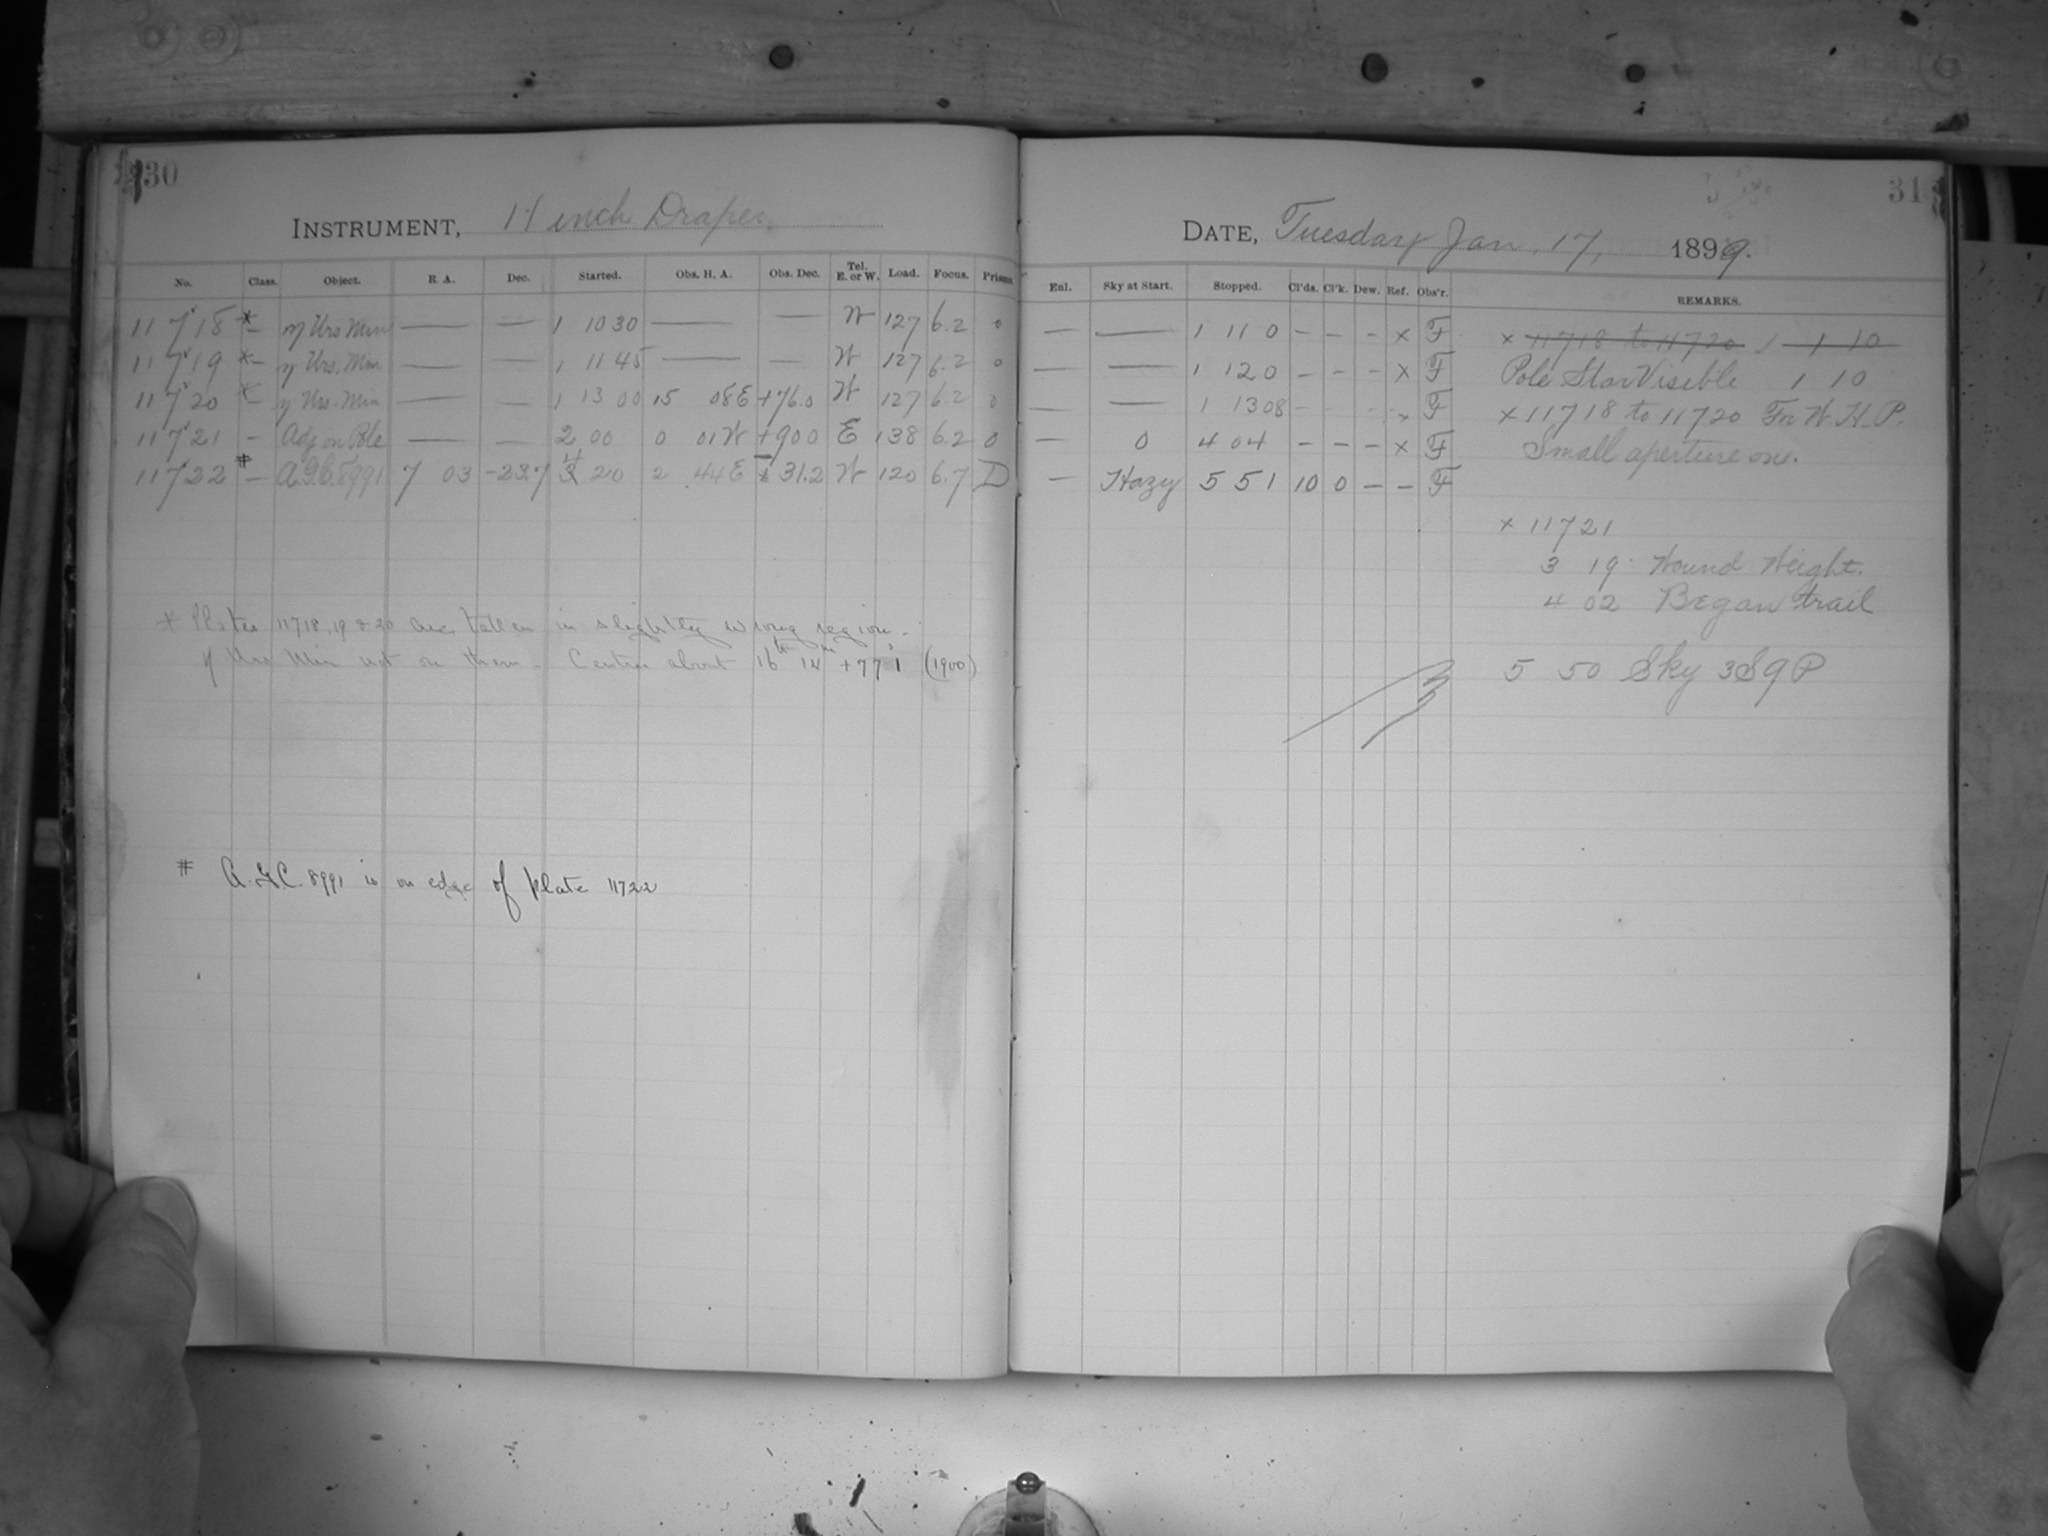 30
INSTRUMENT, 11 inch Draper.
No. Class. Object. R A. Dec. Started. Obs. H. A. Obs. Dec. Tel. E. or W. Load. Focus. Prisms
11718 * – η Urs Min — — 1 10 30 — — W 127 6.2 0
11719 * – η Urs. Min — — 1 11 45 — — W 127 6.2 0
11720 * – η Urs. Min — — 1 13 00 15 08 E +76.0 W 127 6.2 0
11721 – Adj on Pole — — 2 00 0 01 W +90 0 E 138 6.2 0
11722 # – A.G.C. 8991 7 03 -23.7 4 20 2 44 E - 31.2 W 120 6.7 D
* Plates 11718, 19 & 20 are taken in slightly wrong region.
η Urs Min not on them – Center about 16h 14m +77°.1 (1900)
# A.G.C. 8991 is on edge of plate 11722
31
DATE, Tuesday Jan. 17, 1899.
Enl. Sky at Start. Stopped. Cl'ds. Cl'k. Dew. Ref. Obs'r. REMARKS.
— — 1 11 0 – – – x F x 11718 to 11720 1 10
— — 1 12 0 – – – x F Pole Star Visible 1 10
— — 1 13 08 – – – x F x 11718 to 11720 For W. H. P.
— 0 4 04 – – – x F Small aperture on.
— Hazy 5 51 10 0 – – F
x 11721
3 19 Wound Weight.
4 02 Began trail
5 50 Sky 3S9P